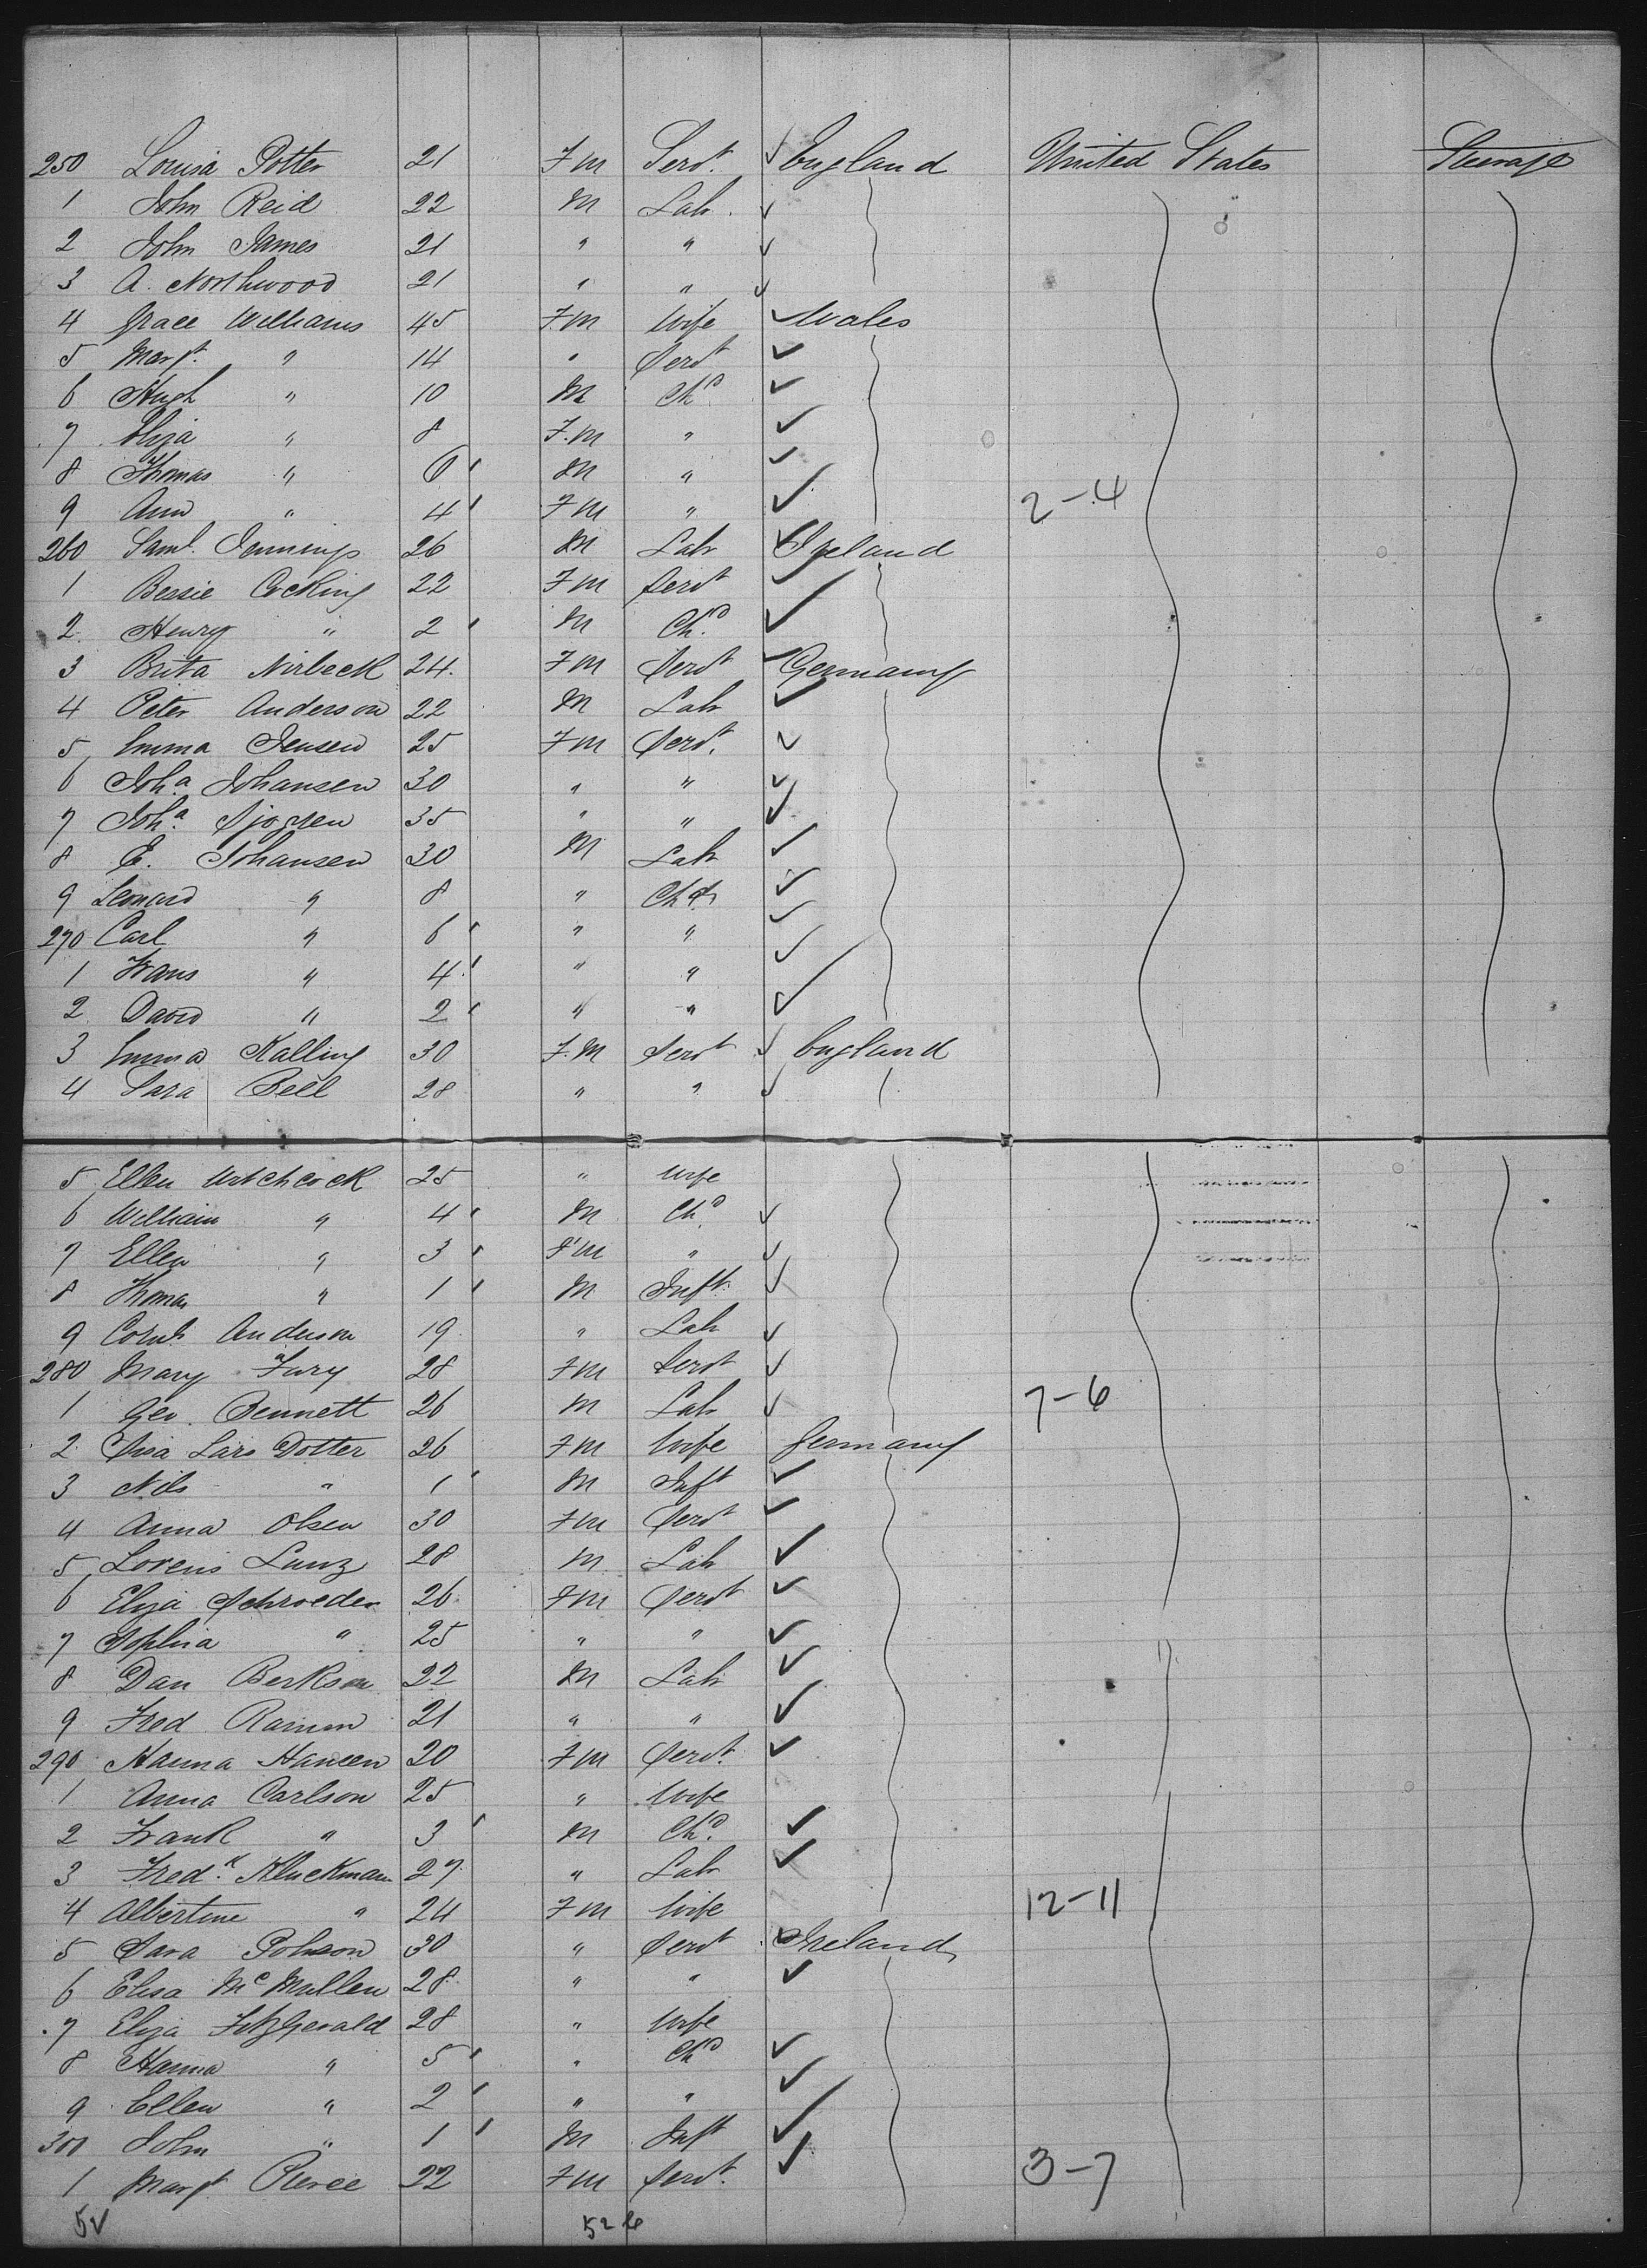 250 Louisa Potter 21 Fm Servt. England United States Steerage
1 John Reid 22 M Lab.
2 John James 21 " "
3 A. Northwood 21 " "
4 Grace Williams 45 Fm Wife Wales
5 Margt. " 14 " Servt
6 Hugh " 10 M Chd
7 Eliza " 8 F.m "
8 Thomas " 6 M "
9 Ann " 4 Fm " 2-4
260 Saml. Jennings 26 M Lab Ireland
1 Bessie Cocking 22 Fm Servt
2 Henry " 2 M Chd.
3 Brita Nirbeck 24. Fm Servt Germany
4 Peter Anderson 22 M Lab
5 Emma Jensen 25 Fm Servt.
6 Joha. Johansen 30 " "
7 Joha. Sjogren 35 " "
8 E. Johansen 30 M Lab
9 Leonard " 8 " Chd
270 Carl " 6 " "
1 Frans " 4 " "
2 David " 2 " "
3 Emma Kalling 30 F.M Servt England
4 Sara Bell 28 " "
5 Ellen 25 " Wife
6 William " 4 M Chd
7 Ellen " 3 Fm "
8 Thomas " 1 M Inft.
9 Anderson 19 " Lab
280 Mary Fury 28 Fm Servt
1 Geo. Bennett 26 M Lab 7-6
2 Lars Dotter 26 Fm Wife Germany
3 Nils " 1 M Inft
4 Anna Olsen 30 Fm Servt
5 Lorens Lunz 28 M Lab
6 Eliza Schroeder 26 Fm Servt
7 Sophia " 25 " "
8 Dan Berkson 22 M Lab
9 Fred 21 " "
290 Hanna Hansen 20 Fm Servt.
1 Anna Carlson 25 " Wife
2 Frank " 3 M Chd.
3 Fredk. Kluckman 27 " Lab
4 Albertine " 24 Fm Wife 12-11
5 Sara 30 " Servt Ireland
6 Elisa McMullen 28 " "
7 Eliza FitzGerald 28 " Wife
8 Hanna " 5 " Chd
9 Ellen " 2 " "
300 John " 1 M Inft
1 Margt. Pierce 22 Fm Servt. 3-7